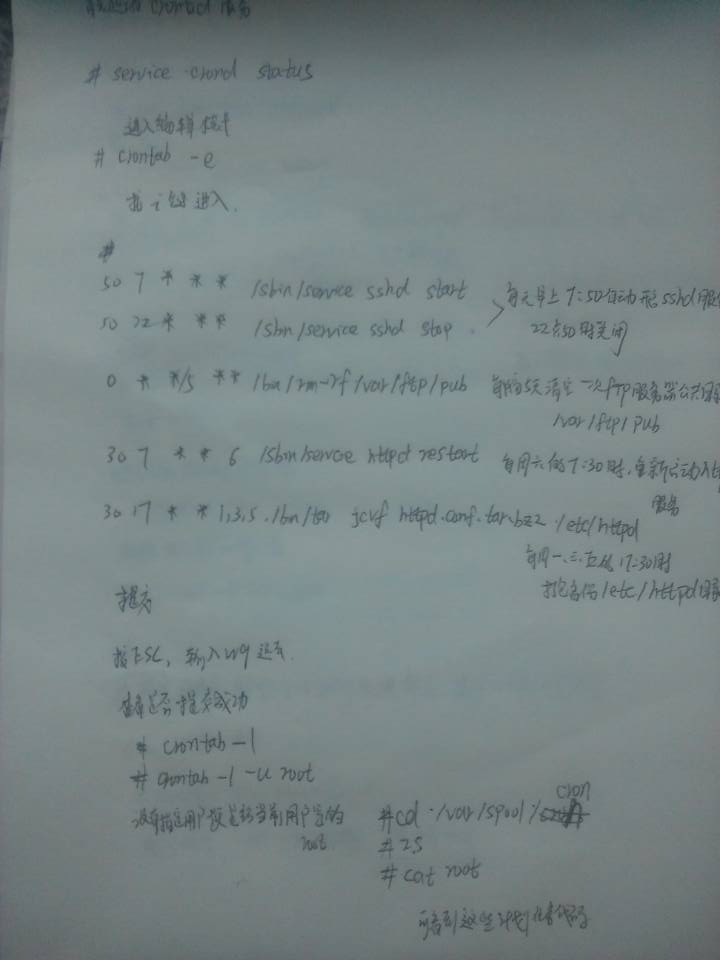 crontd 服务
# service crond status
进入编辑模式
# crontab -e
按 i 键 进入.
#
50 7 * * * /sbin/service sshd start 每天早上7:50自动开启sshd服
50 22 * * * /sbin/service sshd stop . 22点50时关闭
0 * */5 * * /bin/rm -rf /var/ftp/pub 每隔5天清空一次FTP服务器公共目
/var/ftp/pub
30 7 * * 6 /sbin/service httpd restart 每周六的7:30时,重新启动http
服务
30 17 * * 1,3,5 /bin/tar jcvf httpd.conf.tar.bz2 /etc/httpd
每周一.三.五的17:30时
打包备份/etc/httpd目录
提交
按ESC, 输入wq退出.
查看是否提交成功
# crontab -l
# crontab -l -u root
没有指定用户 当前用户 的
root
cron
#cd /var/spool/
# ls
# cat root
可看到这些计划任务代码